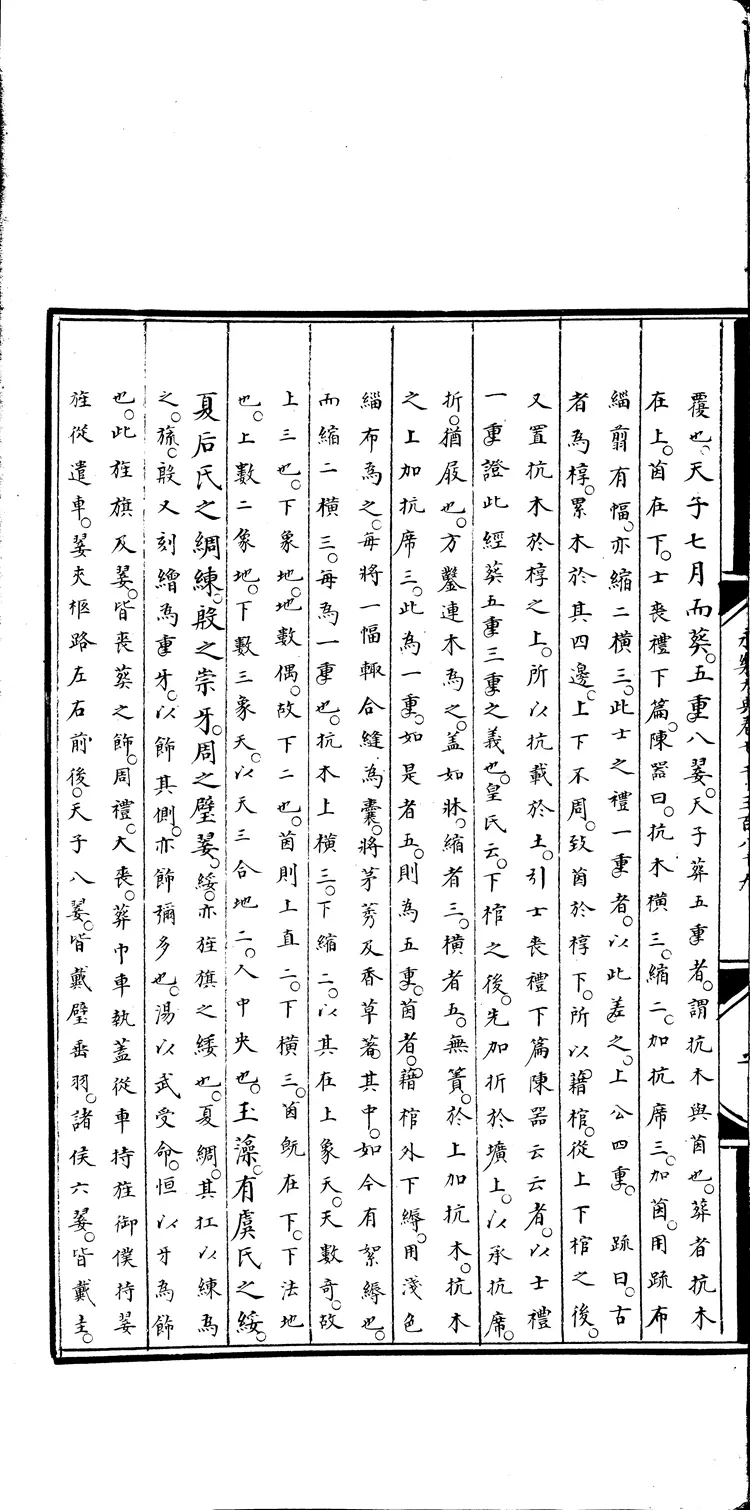 覆也。天子七月而葬。五重八翣。天子葬五重者。謂抗木與茵也。葬者抗木
在上。茵在下。士喪禮下篇。陳器曰。抗木橫三。縮二。加抗席三。加茵。用疏布
緇翦有幅。亦縮二橫三。此士之禮一重者。以此差之。上公四重。 疏曰。古
者為椁。累木於其四邊。上下不周。致茵於椁下。所以藉棺。從上下棺之後。
又置抗木於椁之上。所以抗載於土。引士喪禮下篇陳器云云者。以士禮
一重證此經葬五重三重之義也。皇氏云。下棺之後。先加折於壙上。以承抗席。
折。猶屐也。方鑿連木為之。蓋如牀。縮者三。橫者五。無簀。於上加抗木。抗木
之上加抗席三。此為一重。如是者五。則為五重。茵者。藉棺外下縟。用淺色
緇布為之。每將一幅輒合縫為囊。將茅莠及香草著其中。如今有絮縟也。
而縮二橫三。每為一重也。抗木上橫三。下縮二。以其在上象天。天數奇。故
上三也。下象地。地數偶。故下二也。茵則上直二。下橫三。茵旣在下。下法地
也。上數二象地。下數三象天。以天三合地二。人中央也。玉藻。有虞氏之綏。
夏后氏之綢練。殷之崇牙。周之璧翣。綏。亦旌旗之緌也。夏綢。其扛以練為
之。旒。殷又刻繒為重牙。以飾其側。亦飾彌多也。湯以武受命。恒以牙為飾
也。此旌旗及翣。皆喪葬之飾。周禮。大喪。葬巾車執蓋從車持旌御僕持翣
旌從遣車。翣夾柩路左右前後。天子八翣。皆戴璧垂羽。諸侯六翣。皆戴圭。